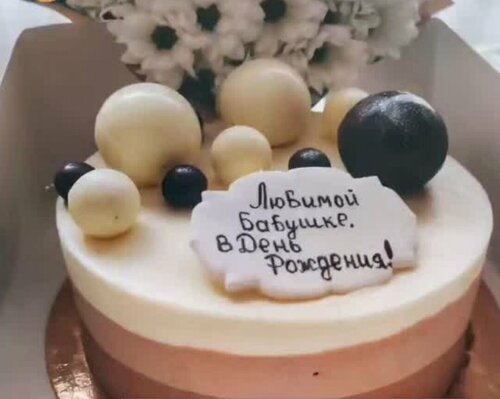 Любимой
Бабушке,
в День
Рождения!